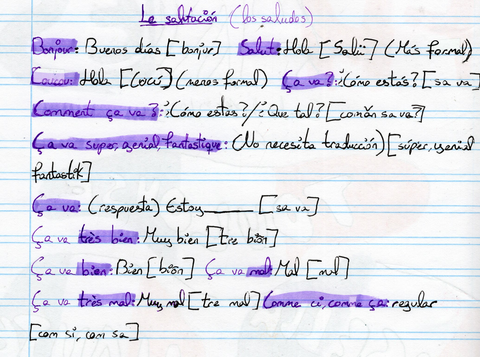 Le salutación (los saludos)
Bonjour: Buenos días [bonjur] Salut: Hola [Salü] (Más formal)
Coucou: Hola [Cocú] (menos formal) Ça va?: ¿Cómo estás? [sa va]
Comment ça va?: ¿Cómo estas?/¿Que tal? [comãn sa va?]
Ça va súper, genial, fantastique: (No necesita traducción) [súper, yenial
fantastik]
Ça va: (respuesta) Estoy ______ [sa va]
Ça va très bien: Muy bien [tre biön]
Ça va bien: Bien [biön] Ça va mal: Mal [mal]
Ça va très mal: Muy mal [tre mal] Comme ci, comme ça: regular
[com si, com sa]